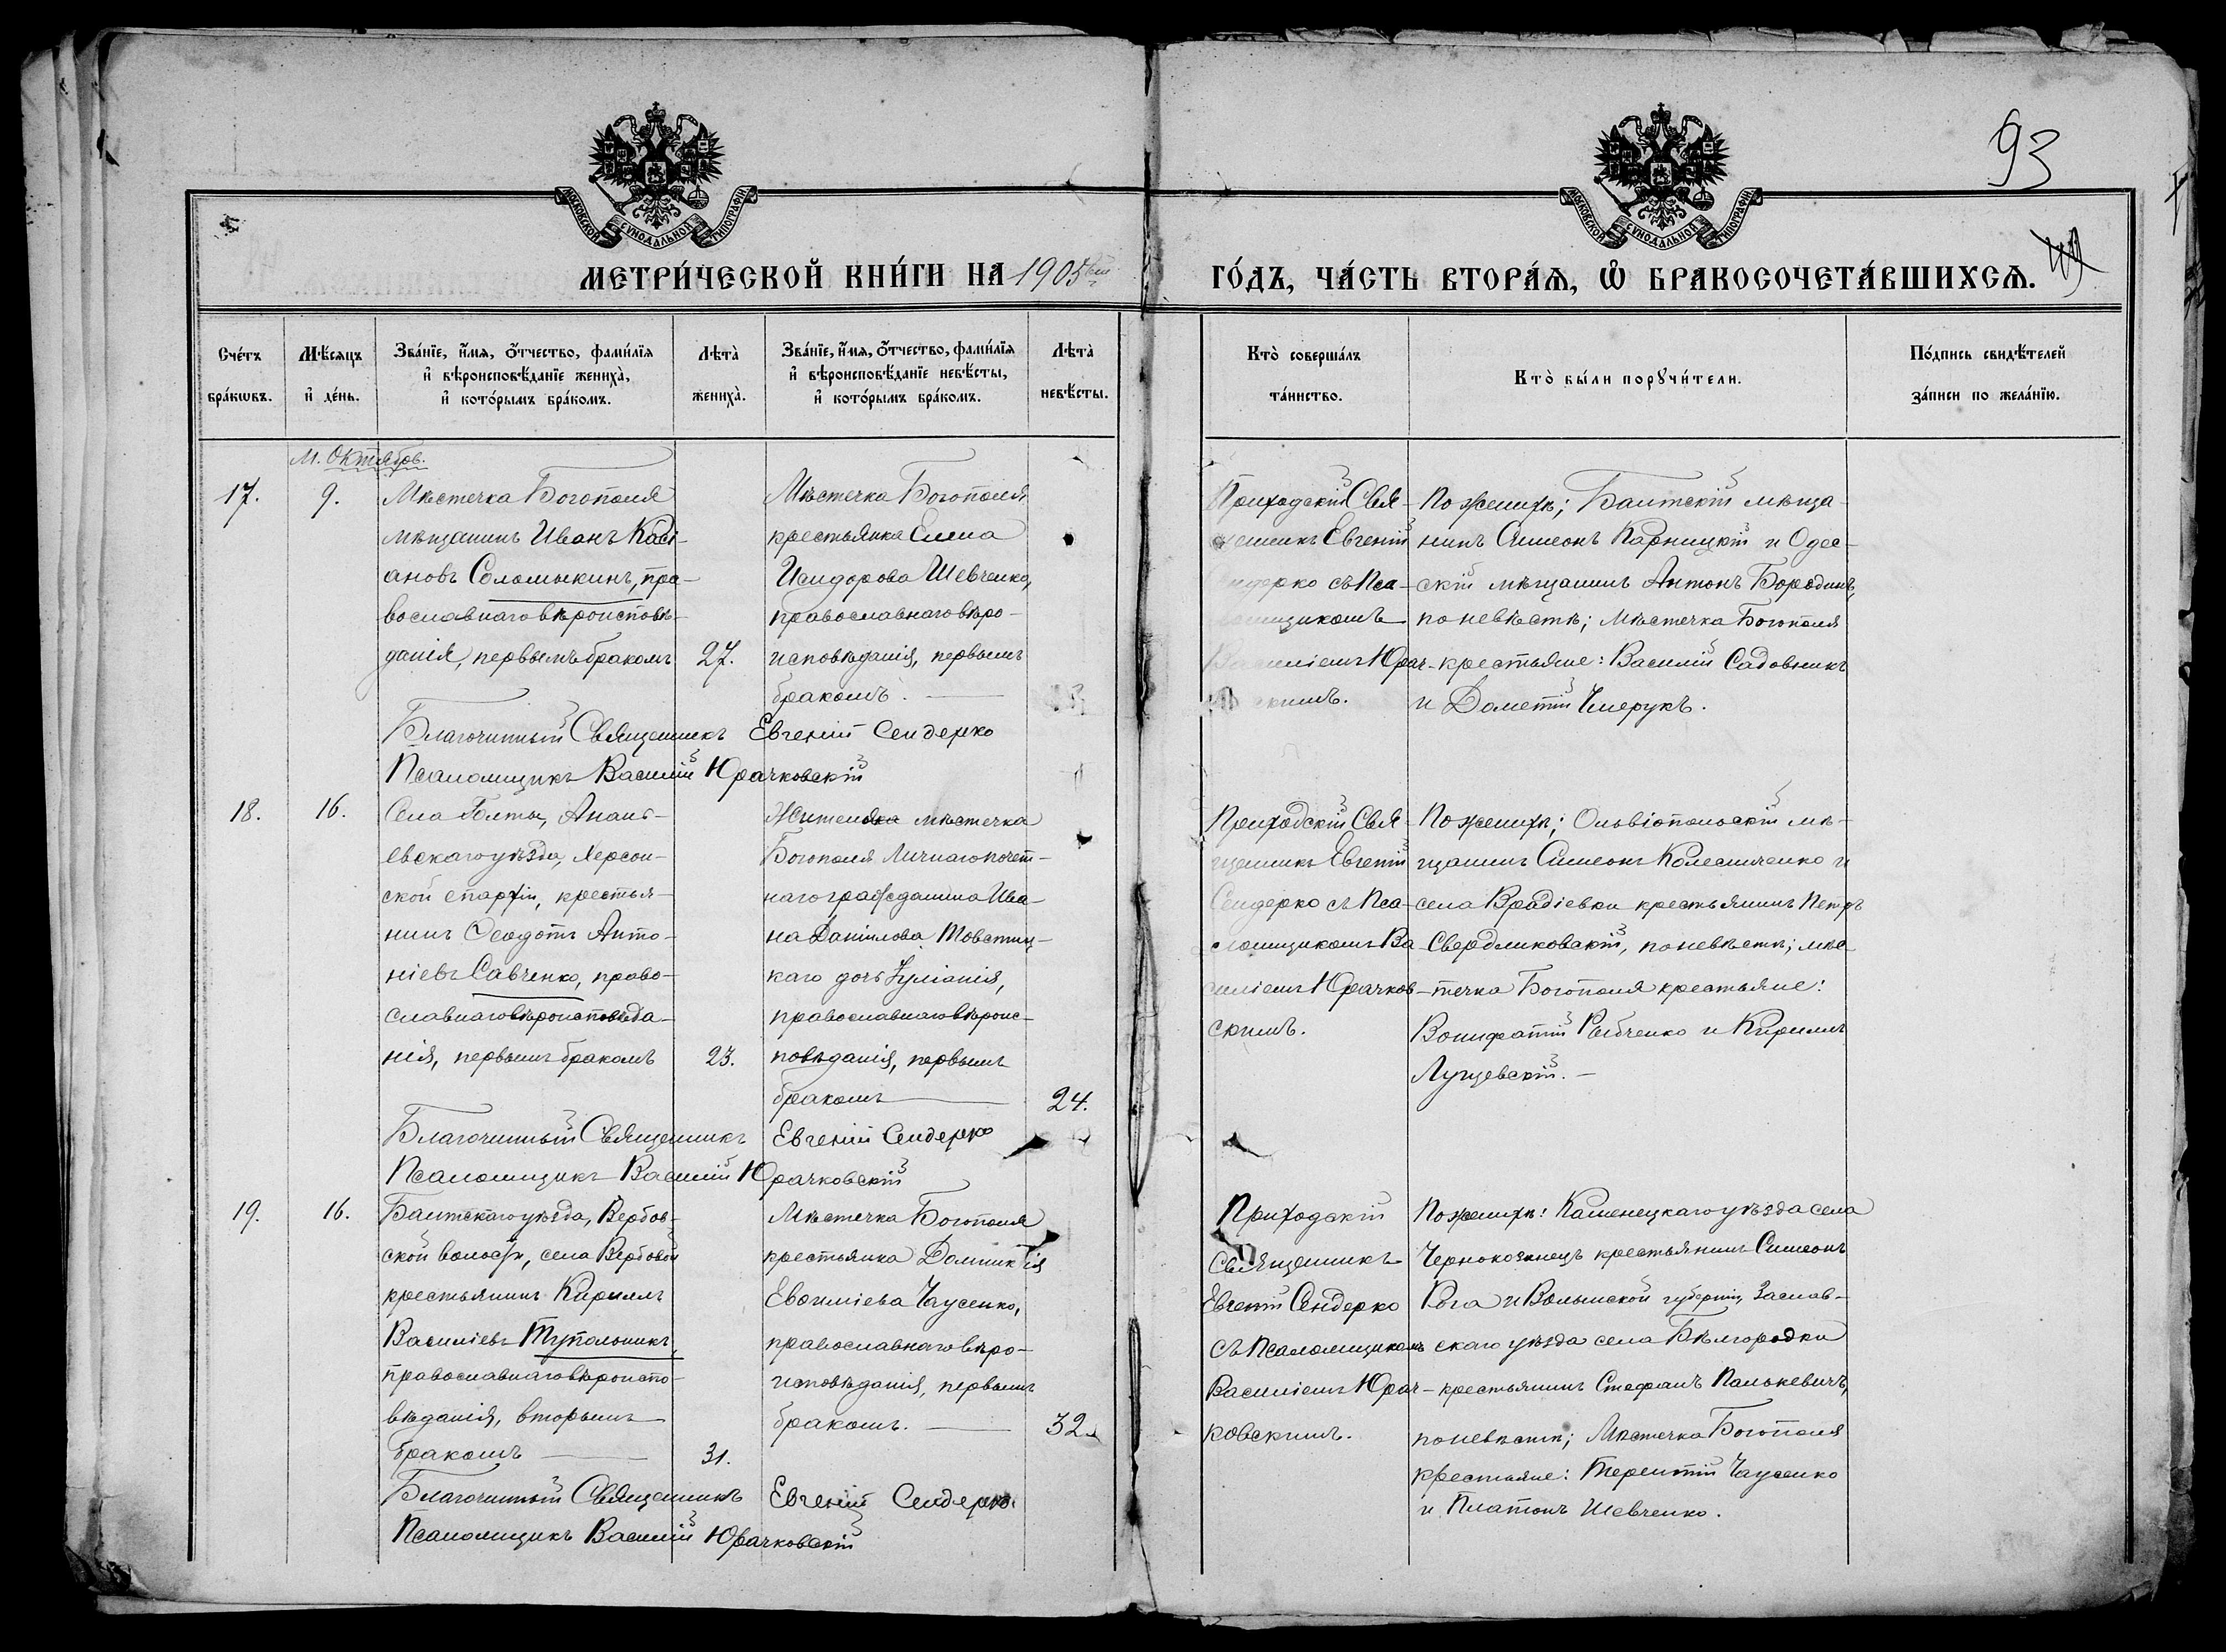 93
МОСКОВСКОЙ СѴНОДАЛЬНОЙ ТИПОГРАФІИ
МОСКОВСКОЙ СѴНОДАЛЬНОЙ ТИПОГРАФІИ
МЕТРИ́ЧЕСКОЙ КНИ́ГИ НА 1905
ГО́ДЪ, ЧА́СТЬ ВТОРА́Ѧ, Ѽ БРАКОСОЧЕТА́ВШИХСѦ.
Сче́тъ бра́кѡвъ.
Мѣ́сяцъ и҆ де́нь.
Зва́нїе, и҆́мя, ѻ҆́тчество, фами́лїя
и҆ вѣроисповѣ́данїе жениха̀,
и҆ кото́рымъ бра́комъ.
Лѣта̀ жениха̀.
Зва́нїе, и҆́мя, ѻ҆́тчество, фами́лїя
и҆ вѣроисповѣ́данїе невѣ́сты,
и҆ кото́рымъ бра́комъ.
Лѣта̀ невѣ́сты.
Кто̀ соверша́лъ
та́инство.
Кто̀ бы́ли порꙋчи́тели.
По́дпись свидѣ́телей
за́писи по жела́нїю.
М. Октябрь.
17.
9.
Мѣстечка Богополя
мѣщанинъ Иванъ Касі-
ановъ Соломыкинъ, пра-
вославнаго вѣроисповѣ-
данія, первымъ бракомъ
27.
Мѣстечка Богополя
крестьянка Елена
Исидорова Шевченко,
православнаго вѣро-
исповѣданія, первымъ
бракомъ.
Приходскій Свя-
щенникъ Евгеній
Сендерко съ Пса-
ломщикомъ
Василіемъ Юрач-
скимъ.
По женихѣ; Балтскій мѣща-
нинъ Симеонъ Карницкій и Одес-
скій мѣщанинъ Антонъ Бородинъ,
по невѣстѣ; мѣстечка Богополя
крестьяне: Василій Садовникъ
и Дометій Чмерукъ.
Благочинный Священникъ Евгеній Сендерко
Псаломщикъ Василій Юрачковскій
18.
16.
Села Голты, Анань-
евскаго уѣзда, Херсон-
ской епархіи, крестья-
нинъ Ѳеодотъ Анто-
ніевъ Савченко, право-
славнаго вѣроисповѣда-
нія, первымъ бракомъ
23.
мѣстечка
Богополя Личнаго почет-
наго гражданина Ива-
на Данілова Товстиц-
каго дочь Іуліанія,
православнаго вѣроис-
повѣданія, первымъ
бракомъ
24.
Приходскій Свя-
щенникъ Евгеній
Сендерко съ Пса-
ломщикомъ Ва-
силіемъ Юрачков-
скимъ.
По женихѣ; Ольвіопольскій мѣ-
щанинъ Симеонъ Колесниченко и
села Врадіевки крестьянинъ Петръ
Свердликовскій, по невѣстѣ; мѣс-
течка Богополя крестьяне:
Вонифатій Рыбченко и Кириллъ
Лущевскій.
Благочинный Священникъ Евгеній Сендерко
Псаломщикъ Василій Юрачковскій
19.
16.
Балтскаго уѣзда, Вербов-
ской волости, села Вербовой
крестьянинъ Кириллъ
Василіевъ Тупольникъ,
православнаго вѣроиспо-
вѣданія, вторымъ
бракомъ
31.
Мѣстечка Богополя
крестьянка Домникія
Евѳиміева Чаусенко,
православнаго вѣро-
исповѣданія, первымъ
бракомъ.
32.
Приходскій
Священникъ
Евгеній Сендерко
съ Псаломщикомъ
Василіемъ Юрач-
ковскимъ.
По женихѣ: Каменецкаго уѣзда села
Чернокозинецъ крестьянинъ Симеонъ
Рога и Волынской губерніи, Заслав-
скаго уѣзда села Бѣлгородки
крестьянинъ Стефанъ Палькевичъ,
по невѣстѣ; Мѣстечка Богополя
крестьяне: Терентій Чаусенко
и Платонъ Шевченко.
Благочинный Священникъ Евгеній Сендерко.
Псаломщикъ Василій Юрачковскій